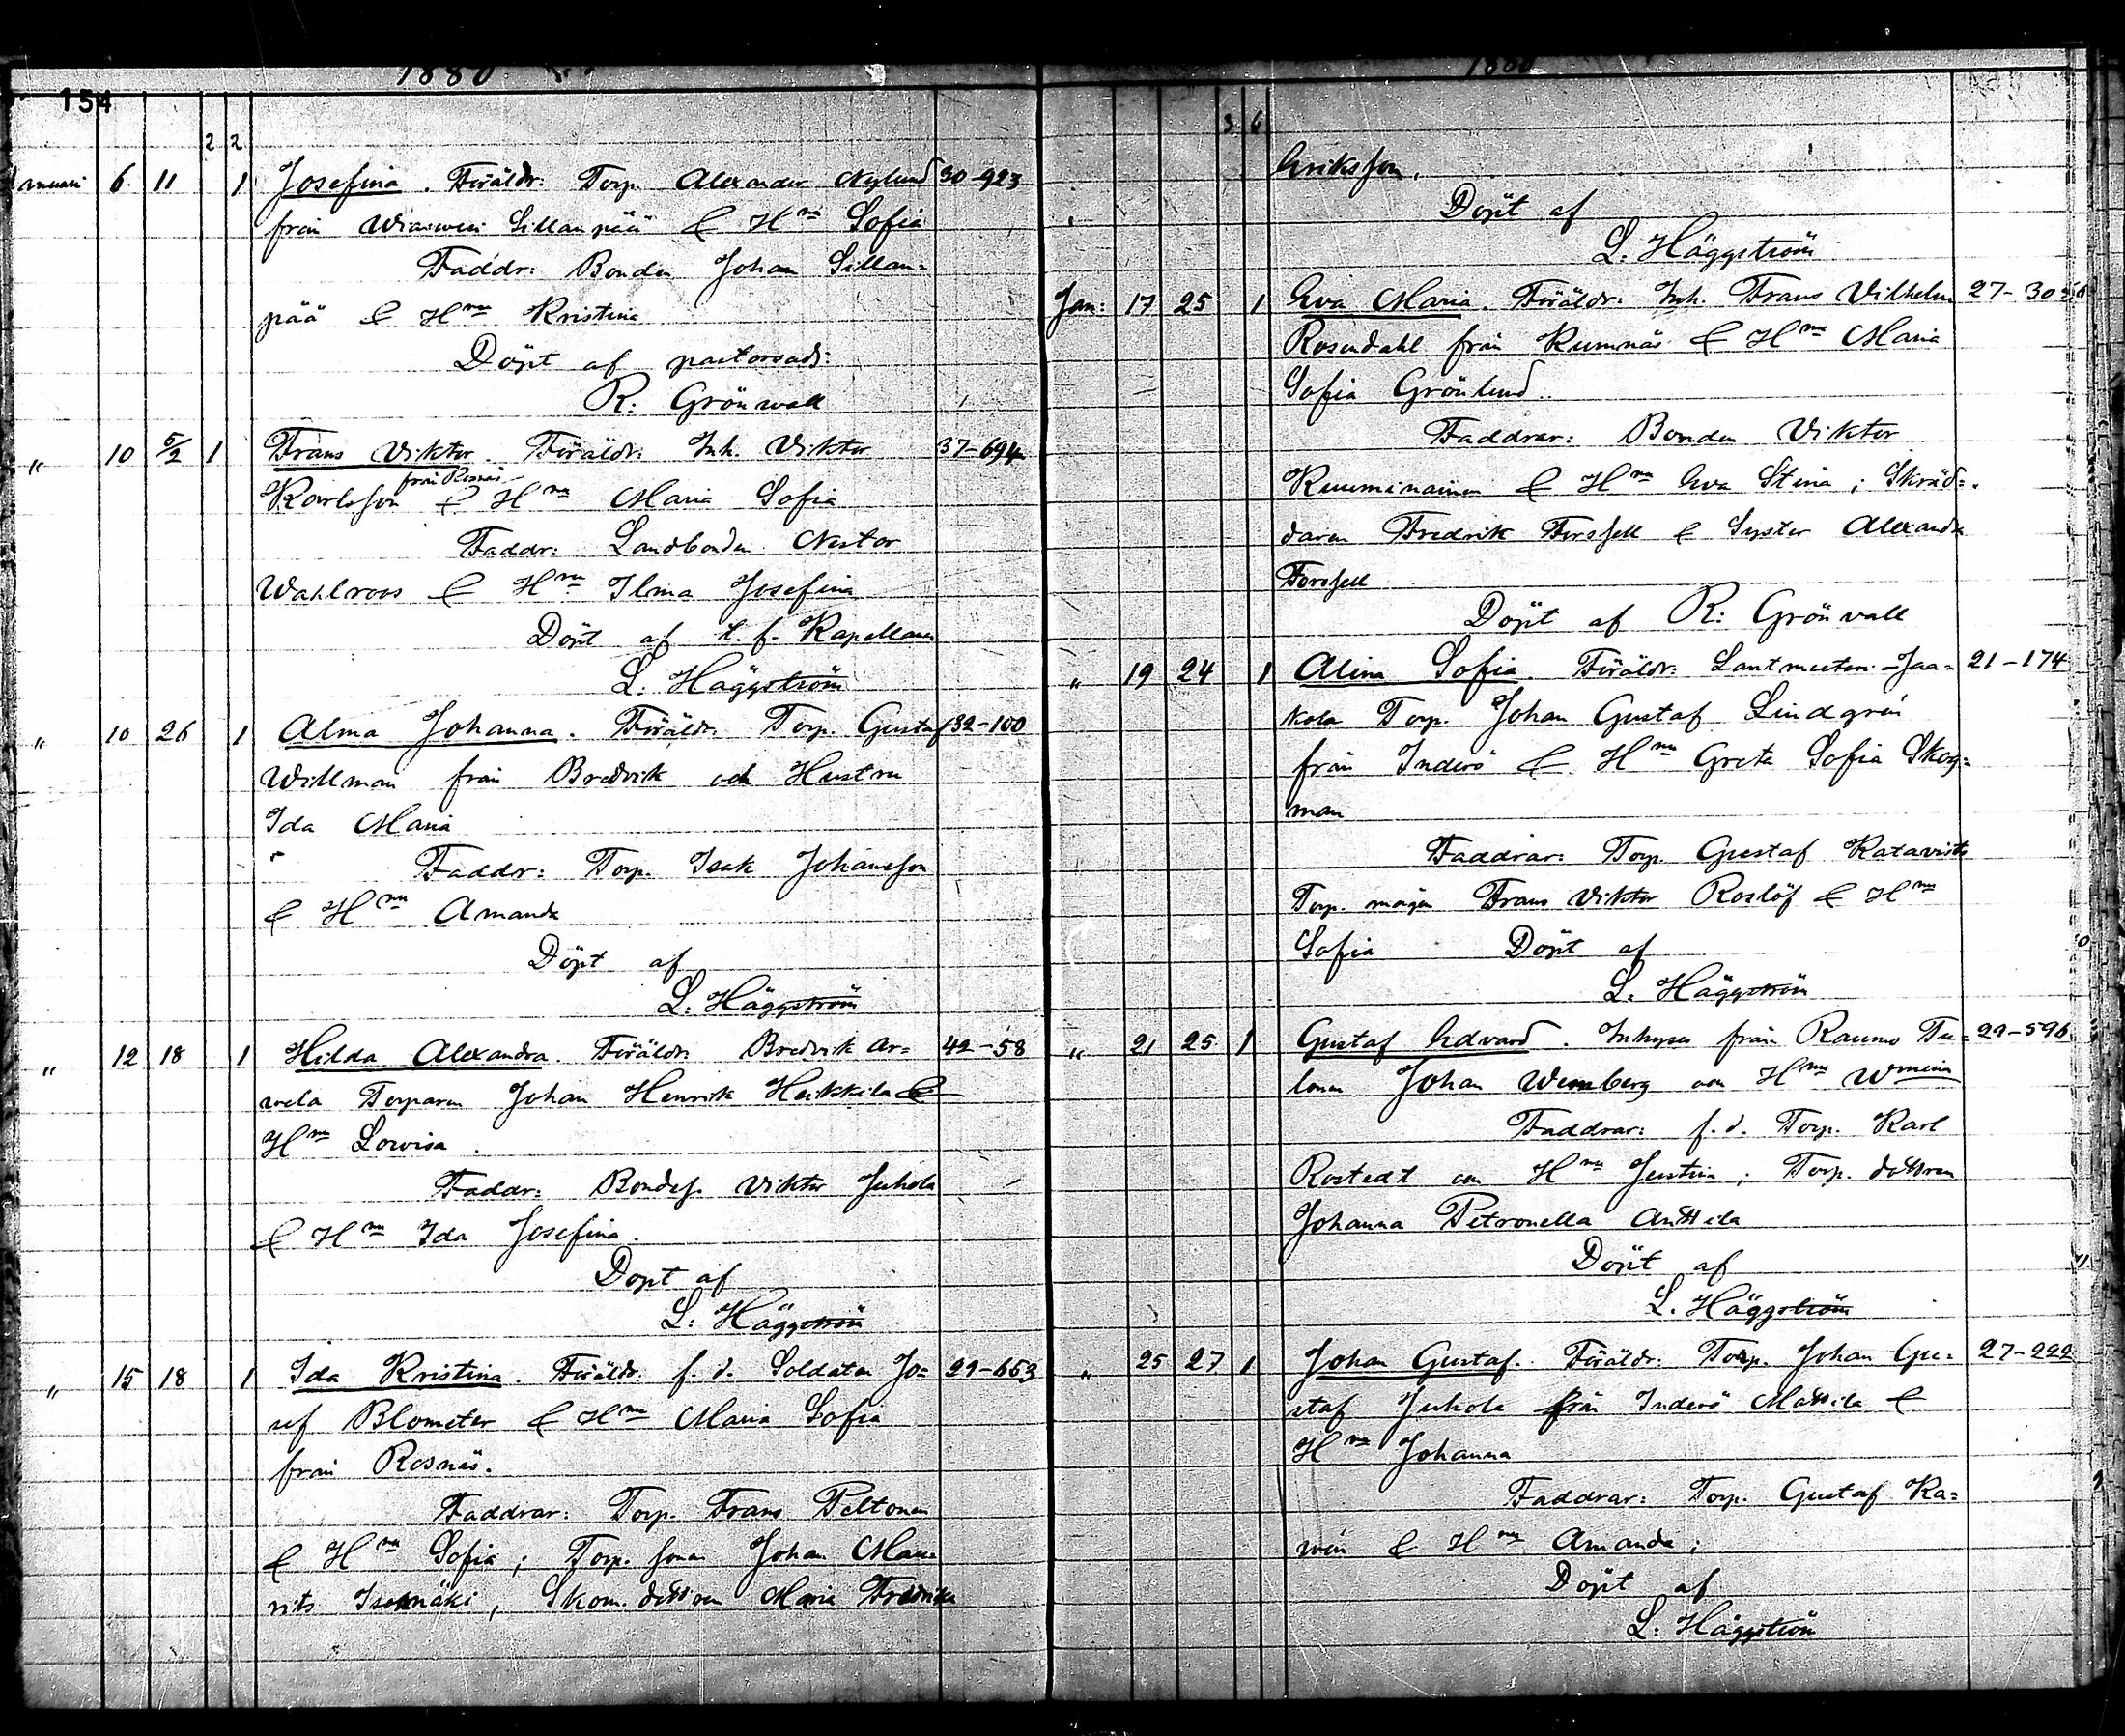 1880
154
2 2
Januari 6. 11 1 Josefina. Föräldr: Torp. Alexander Nylund 30-923
från Sillanpää & Hru Sofia
Faddr: Bonden Johan Sillan=
pää & Hru Kristina
Döpt af pastorsadj:
R: Grönwall
" 10 5/2 1 Frans Viktor. Föräldr: Inh. Viktor 37-694
från Rosnäs
Karlsson & Hru Maria Sofia
Faddr: Landbonden Nestor
Wahlroos & Hru Ilma Josefina
Döpt af t. f. Kapellanen
L: Häggström
" 10 26 1 Alma Johanna. Föräldr: Torp. Gustaf 32-100
Willman från Bredvik och Hustru
Ida Maria
Faddr: Torp. Isak Johansson
& Hru Amanda
Döpt af
L: Häggström
" 12 18 1 Hilda Alexandra. Föräldr: Bredvik Ar=
42-58
wela Torparen Johan Henrik Heikkilä &
Hru Lowisa.
Faddr: Bondes. Viktor Juhola
& Hru Ida Josefina.
Döpt af
L: Häggström
" 15 18 1 Ida Kristina. Föräldr: f. d. Soldaten Jo= 29-653
sef Blomster & Hru Maria Sofia
från Rosnäs.
Faddrar: Torp. Frans Peltonen
& Hru Sofia; Torp. sonen Johan Mau=
rits Isomäki, Skom. dottren Maria Fredrika
1880
3 6
Eriksson.
Döpt af
L: Häggström
Jan: 17 25 1 Eva Maria. Föräldr: Inh. Frans Vilhelm 27-30
Rosendahl från Kumnäs & Hru Maria
Sofia Grönlund.
Faddrar: Bonden Viktor
Kuuminainen & Hru Eva Stina; Skräd=
daren Fredrik Forsfell & Syster Alexandra
Forsfell
Döpt af R: Grönvall
" 19 24 1 Alina Sofia. Föräldr: Lantmeteri-Jaa= 21-174
kola Torp. Johan Gustaf Lindgrén
från Inderö & Hru Greta Sofia Skog=
man
Faddrar: Torp. Gustaf Katavisto
Torp. mågen Frans Viktor Roslöf & Hru
Sofia Döpt af
L: Häggström
" 21 25 1 Gustaf Edvard. Inhyses från Raumo Tu= 29-596
lonen Johan Wemberg och Hru
Faddrar: f. d. Torp. Karl
Rostedt och Hru Justina; Torp. dottren
Johanna Petronella Anttila
Döpt af
L. Häggström
" 25 27 1 Johan Gustaf. Föräldr: Torp. Johan Gu= 27-222
staf Juhola från Inderö Mattila &
Hru Johanna
Faddrar: Torp. Gustaf Ka=
wén & Hru Amanda;
Döpt af
L: Häggström